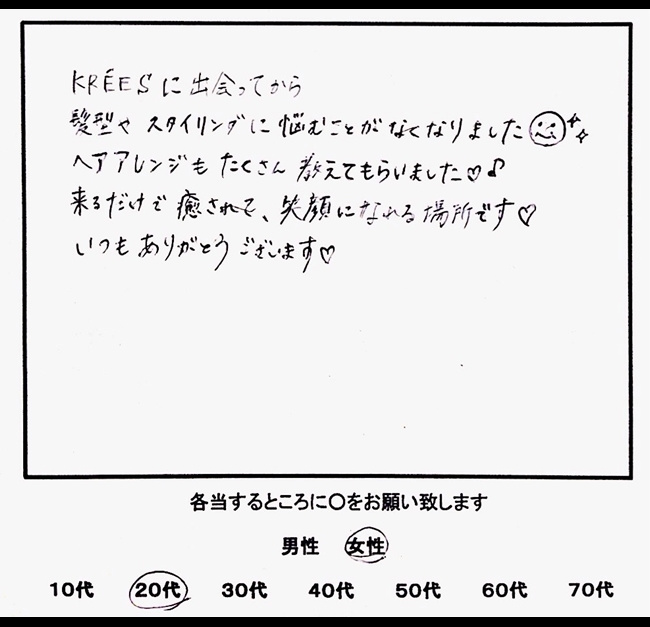 KRÉESに出会ってから
髪型やスタイリングに悩むことがなくなりました
ヘアアレンジもたくさん教えてもらいました♡♪
来るだけで癒されて、笑顔になれる場所です♡
いつもありがとうございます♡
各当するところに〇をお願い致します
男性 女性
10代 20代 30代 40代 50代 60代 70代